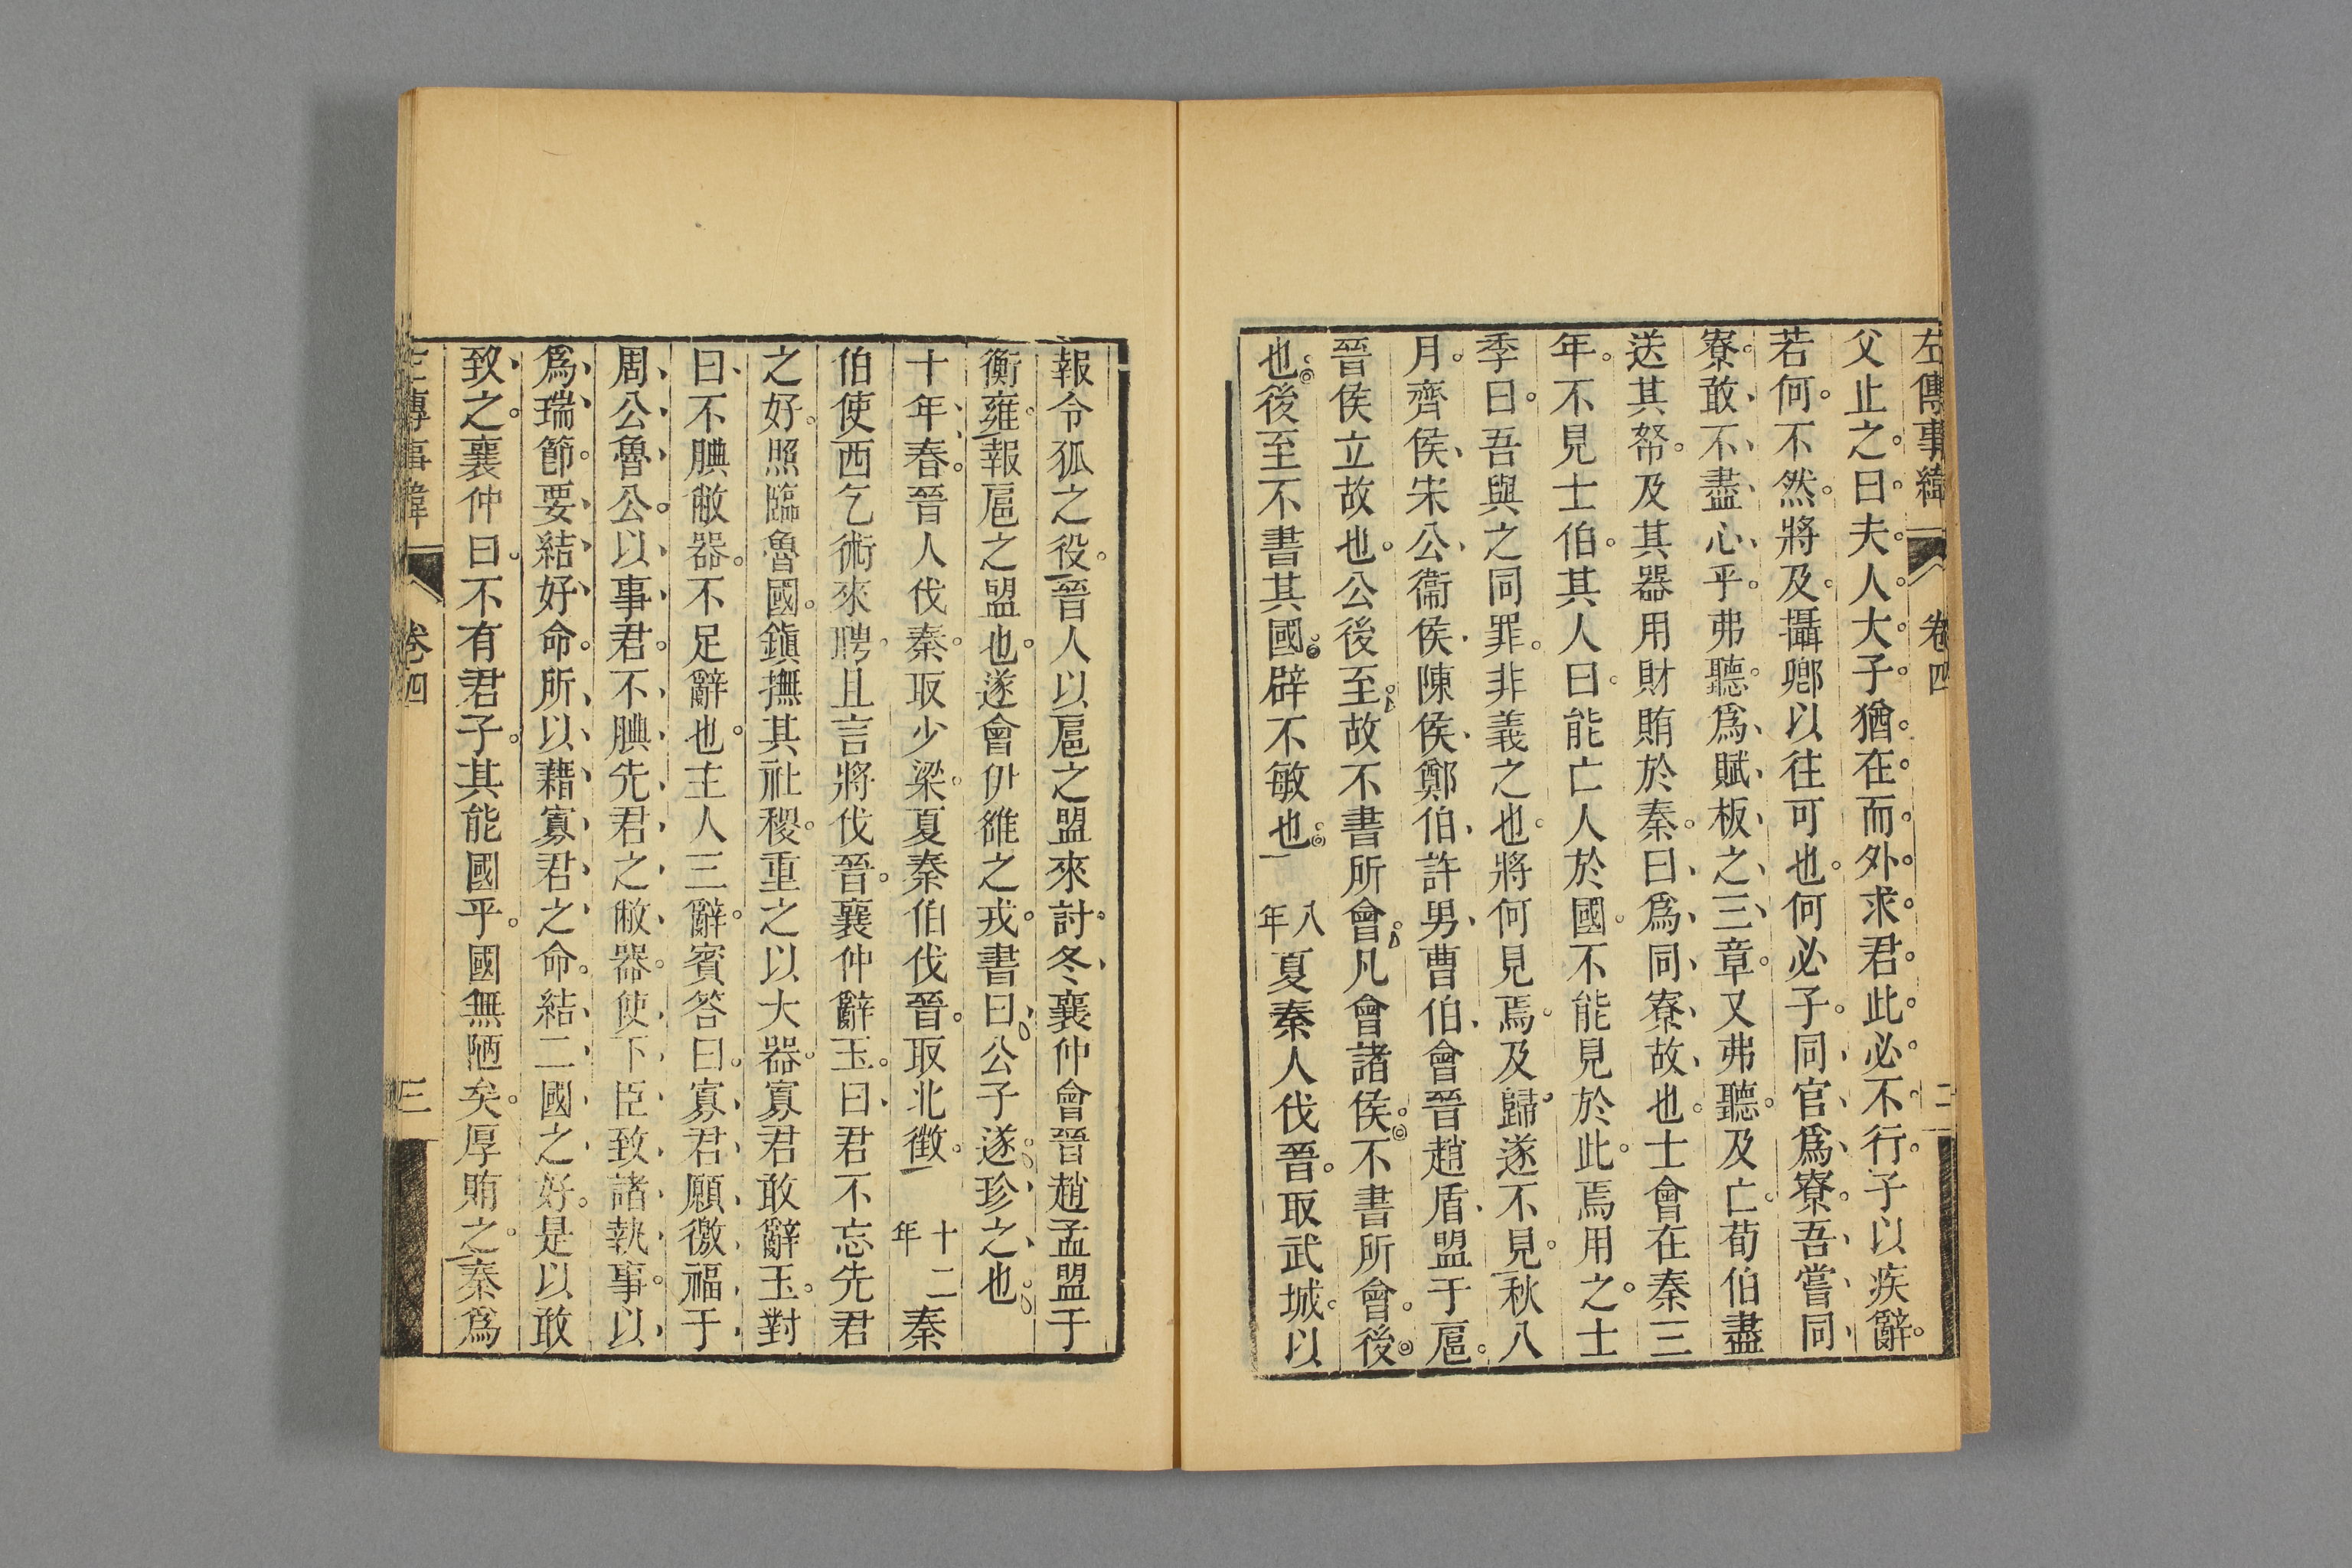 左傳事緯 卷四 二
父止之曰夫人大子猶在而外求君此必不行子以疾辭
若何不然將及攝卿以往可也何必子同官爲寮吾嘗同
寮敢不盡心乎弗聽爲賦板之三章又弗聽及亡荀伯盡
送其帑及其器用財賄於秦曰爲同寮故也士會在秦三
年不見士伯其人曰能亡人於國不能見於此焉用之士
季曰吾與之同罪非義之也將何見焉及歸遂不見秋八
月齊侯宋公衞侯陳侯鄭伯許男曹伯會晉趙盾盟于扈
晉侯立故也公後至故不書所會凡會諸侯不書所會後
也後至不書其國辟不敏也八年夏秦人伐晉取武城以
報令狐之役晉人以扈之盟來討冬襄仲會晉趙孟盟于
衡雍報扈之盟也遂會伊雒之戎書曰公子遂珍之也
十年春晉人伐秦取少梁夏秦伯伐晉取北徵十二年秦
伯使西乞術來聘且言將伐晉襄仲辭玉曰君不忘先君
之好照臨魯國鎮撫其社稷重之以大器寡君敢辭玉對
曰不腆敝器不足辭也主人三辭賓答曰寡君願徼福于
周公魯公以事君不腆先君之敝器使下臣致諸執事以
爲瑞節要結好命所以藉寡君之命結二國之好是以敢
致之襄仲曰不有君子其能國乎國無陋矣厚賄之秦爲
左傳事緯 卷四 三